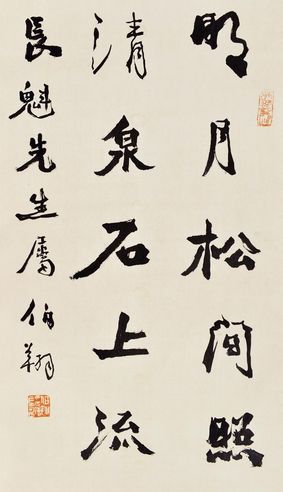 明月松间照
清泉石上流
長魁先生属 伯翔